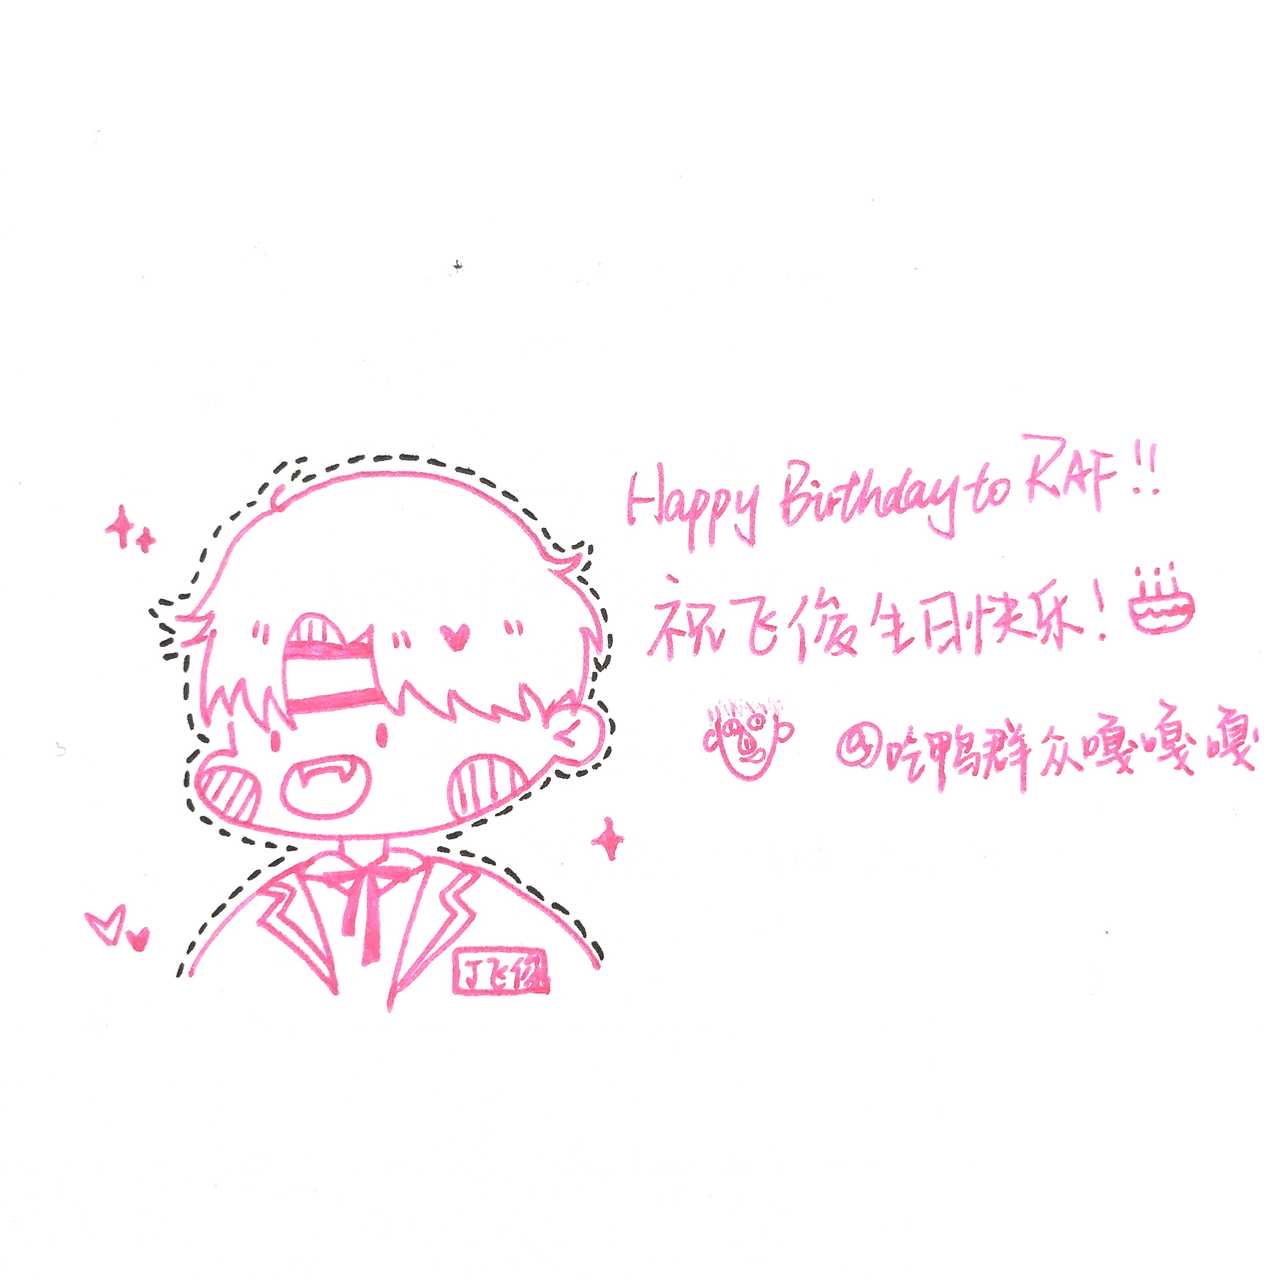 Happy Birthday to RAF!!
祝飞俊生日快乐!
@吃鸭群众嘎嘎嘎
丁飞俊